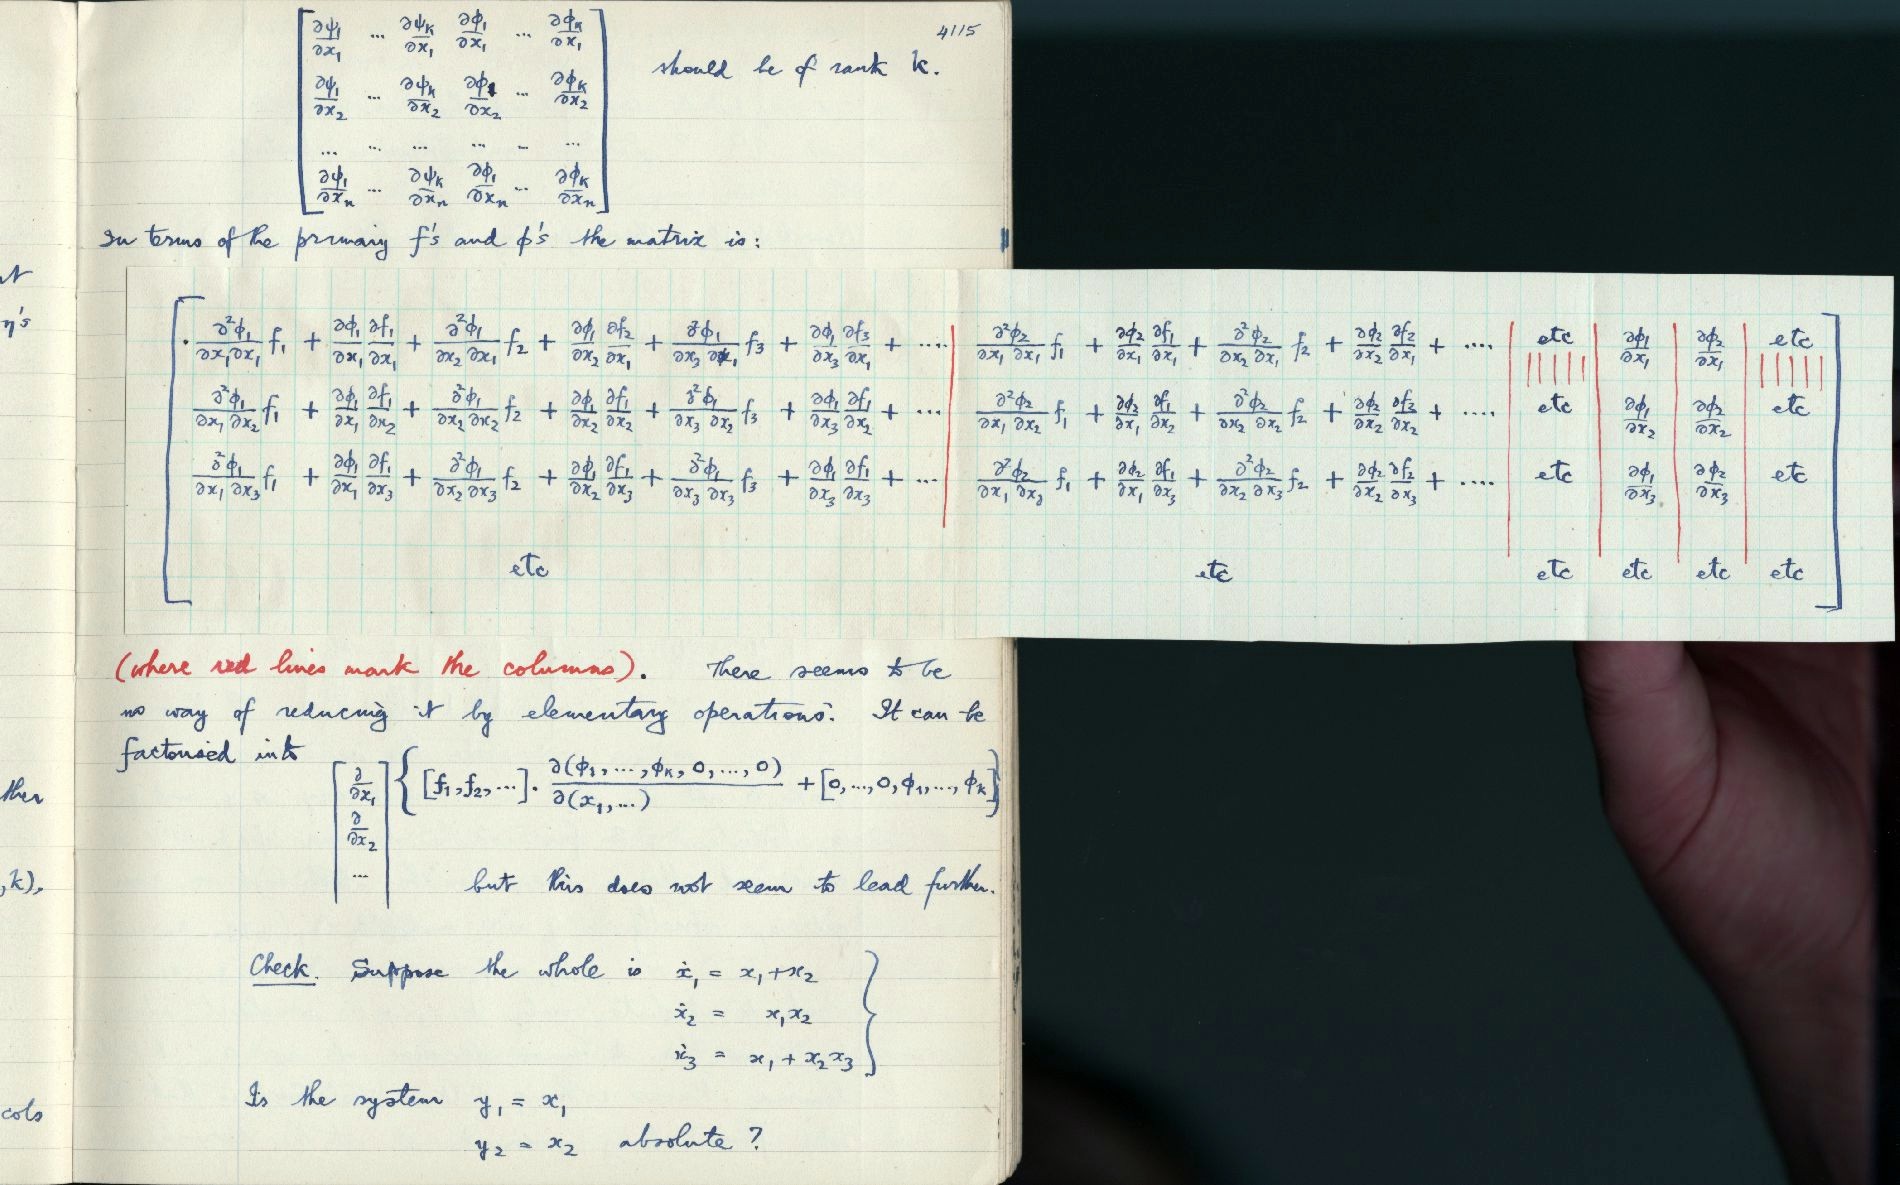 4115
[ ∂ψ₁/∂x₁ ... ∂ψₖ/∂x₁ ∂ϕ₁/∂x₁ ... ∂ϕₖ/∂x₁ ]
should be of rank k.
[ ∂ψ₁/∂x₂ ... ∂ψₖ/∂x₂ ∂ϕ₁/∂x₂ ... ∂ϕₖ/∂x₂ ]
... ... ... ... ... ...
[ ∂ψ₁/∂xₙ ... ∂ψₖ/∂xₙ ∂ϕ₁/∂xₙ ... ∂ϕₖ/∂xₙ ]
In terms of the primary f's and ϕ's the matrix is:
η's
∂²ϕ₁/∂x₁∂x₁ f₁ + ∂ϕ₁/∂x₁ ∂f₁/∂x₁ + ∂²ϕ₁/∂x₂∂x₁ f₂ + ∂ϕ₁/∂x₂ ∂f₂/∂x₁ + ∂²ϕ₁/∂x₃∂x₁ f₃ + ∂ϕ₁/∂x₃ ∂f₃/∂x₁ + .... | ∂²ϕ₂/∂x₁∂x₁ f₁ + ∂ϕ₂/∂x₁ ∂f₁/∂x₁ + ∂²ϕ₂/∂x₂∂x₁ f₂ + ∂ϕ₂/∂x₂ ∂f₂/∂x₁ + .... | etc | ∂ϕ₁/∂x₁ | ∂ϕ₂/∂x₁ | etc
∂²ϕ₁/∂x₁∂x₂ f₁ + ∂ϕ₁/∂x₁ ∂f₁/∂x₂ + ∂²ϕ₁/∂x₂∂x₂ f₂ + ∂ϕ₁/∂x₂ ∂f₁/∂x₂ + ∂²ϕ₁/∂x₃∂x₂ f₃ + ∂ϕ₁/∂x₃ ∂f₁/∂x₂ + ... | ∂²ϕ₂/∂x₁∂x₂ f₁ + ∂ϕ₂/∂x₁ ∂f₁/∂x₂ + ∂²ϕ₂/∂x₂∂x₂ f₂ + ∂ϕ₂/∂x₂ ∂f₂/∂x₂ + .... | etc | ∂ϕ₁/∂x₂ | ∂ϕ₂/∂x₂ | etc
∂²ϕ₁/∂x₁∂x₃ f₁ + ∂ϕ₁/∂x₁ ∂f₁/∂x₃ + ∂²ϕ₁/∂x₂∂x₃ f₂ + ∂ϕ₁/∂x₂ ∂f₁/∂x₃ + ∂²ϕ₁/∂x₃∂x₃ f₃ + ∂ϕ₁/∂x₃ ∂f₁/∂x₃ + ... | ∂²ϕ₂/∂x₁∂x₃ f₁ + ∂ϕ₂/∂x₁ ∂f₁/∂x₃ + ∂²ϕ₂/∂x₂∂x₃ f₂ + ∂ϕ₂/∂x₂ ∂f₂/∂x₃ + .... | etc | ∂ϕ₁/∂x₃ | ∂ϕ₂/∂x₃ | etc
etc etc etc etc etc etc
(where red lines mark the columns). There seems to be
no way of reducing it by elementary operations. It can be
factorised into
[ ∂/∂x₁ ∂/∂x₂ ... ] { [f₁, f₂, ...] . ∂(ϕ₁, ..., ϕₖ, 0, ..., 0)/∂(x₁, ...) + [0, ..., 0, ϕ₁, ..., ϕₖ] }
,k),
but this does not seem to lead further.
Check. Suppose the whole is ẋ₁ = x₁ + x₂
ẋ₂ = x₁x₂
ẋ₃ = x₁ + x₂x₃
Is the system y₁ = x₁
cols
y₂ = x₂ absolute?